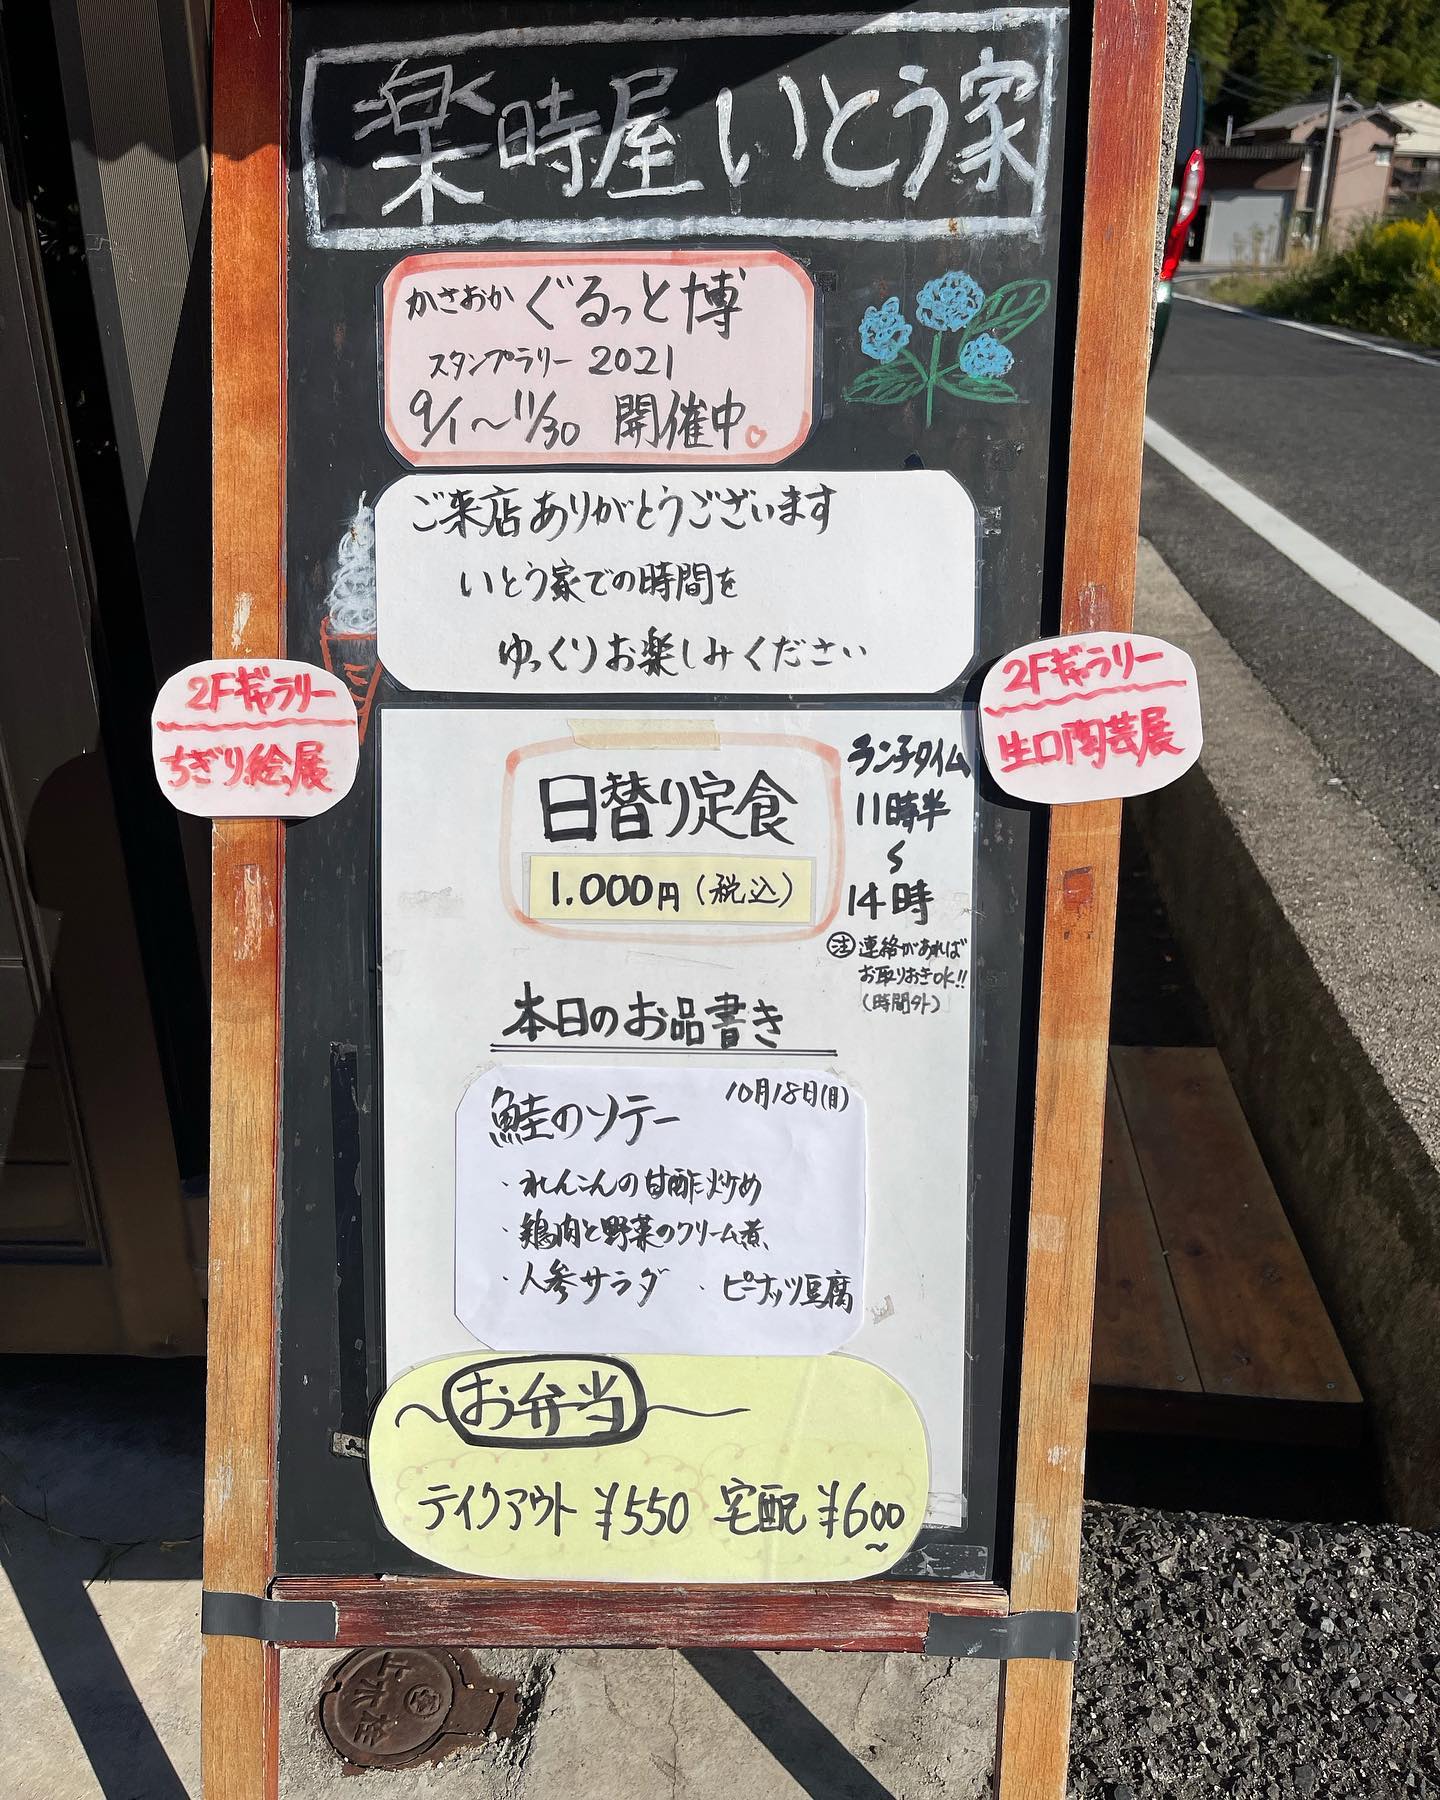 楽時屋 いとう家
かさおか ぐるっと博
スタンプラリー 2021
9/1〜11/30 開催中。
ご来店ありがとうございます
いとう家での時間を
ゆっくりお楽しみください
2Fギャラリー
ちぎり絵展
2Fギャラリー
生口陶芸展
日替り定食
1.000円(税込)
ランチタイム
11時半
〜
14時
注 連絡があれば
お取りおきOK!!
(時間外)
本日のお品書き
10月18日(月)
鮭のソテー
・れんこんの甘酢炒め
・鶏肉と野菜のクリーム煮
・人参サラダ ・ピーナッツ豆腐
〜お弁当〜
テイクアウト ¥550 宅配 ¥600〜
止水栓